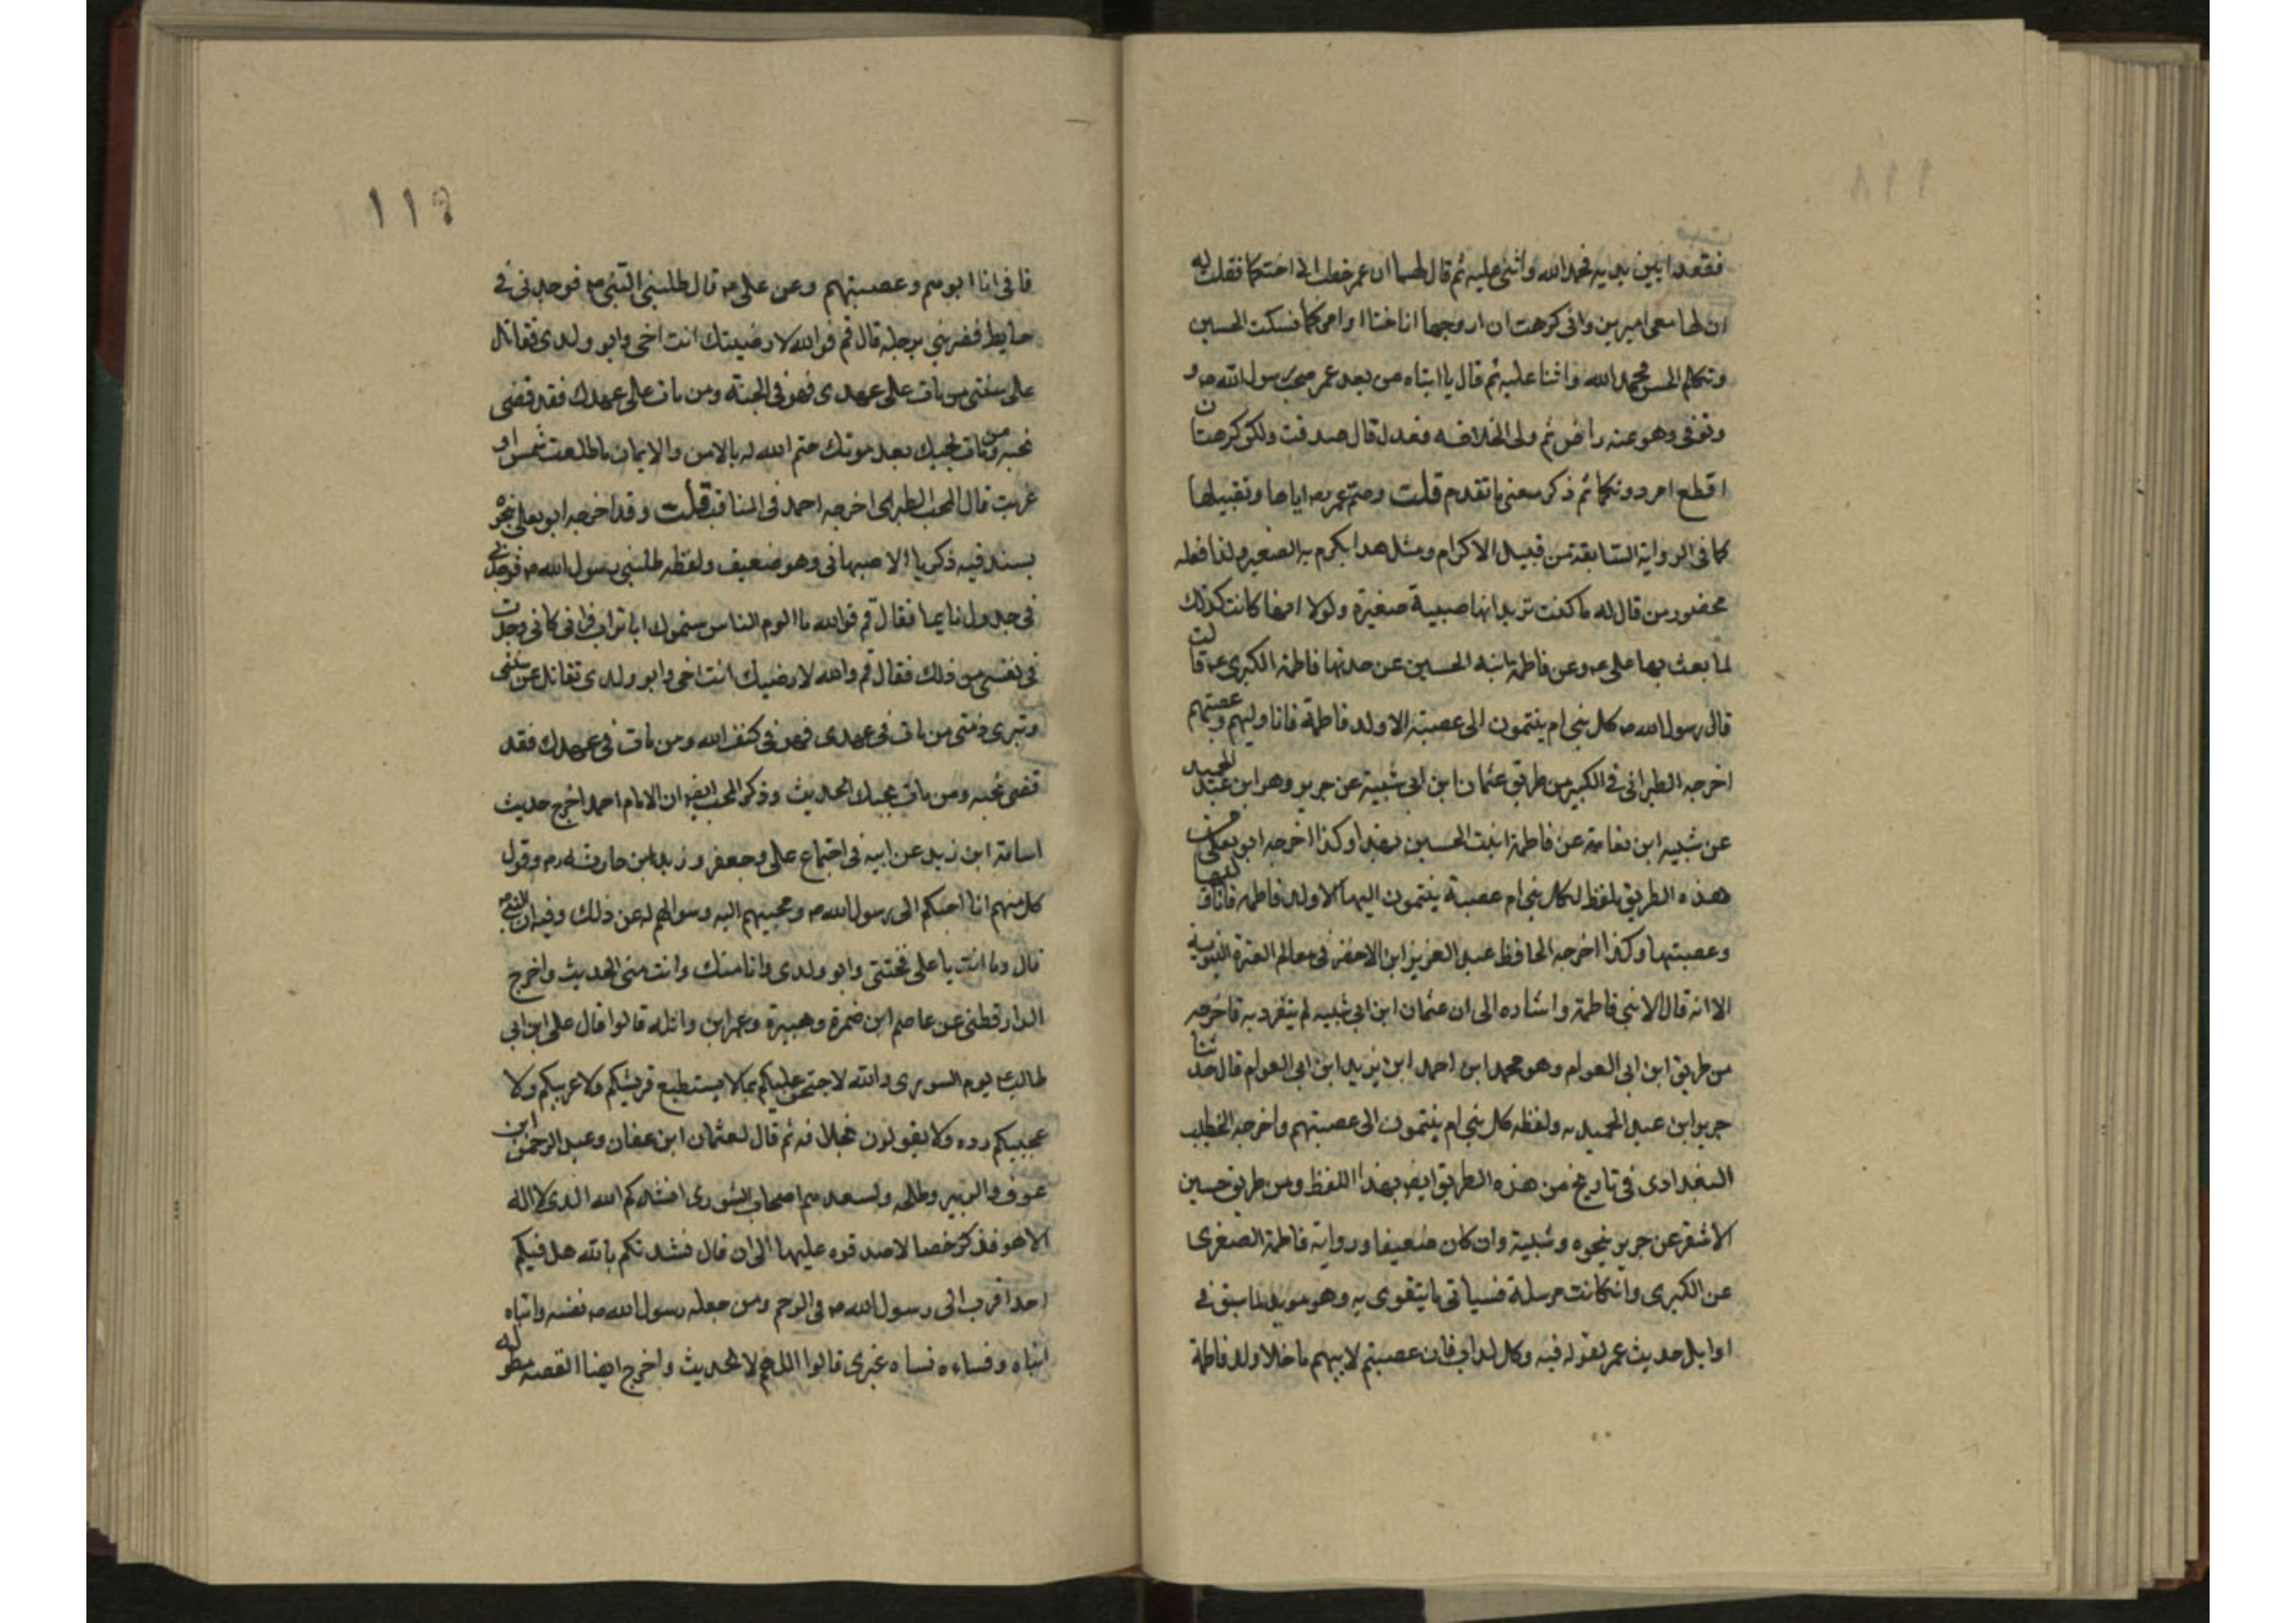 فقعدا بين يديه فحمد الله واثنى عليه ثم قال لهما ان عمر خطب الى اختكما فقلت له
ان لها معى اميرين وانى كرهت ان ازوجها اياه حتى اوامركما فسكت الحسين
وتكلم الحسن فحمد الله واثنا عليه ثم قال يا ابتاه من بعد عمر صحب رسول الله ص و
وتوفى وهو عنه راض ثم ولى الخلافه فعدل قال صدقت ولكن كرهت ان
اقطع امر دونكما ثم ذكر معنى ما تقدم قلت وضم عمر رض اياها وتقبيلها
كما فى الرواية السابقة من قبيل الاكرام ومثل هذا يكرم به الصغير ولذا فعله
بحضور من قال له ما كنت تريد انها صبية صغيرة ولولا انها كانت كذلك
لما بعث بها على ع وعن فاطمة ابنة الحسين عن جدتها فاطمة الكبرى ع قالت
قال رسول الله ص كل بنى ام ينتمون الى عصبة الا ولد فاطمة فانا وليهم وعصبتهم
اخرجه الطبرانى فى الكبير من طريق عثمان ابن ابى شيبة عن جرير وهو ابن عبد الحميد
عن شيبه ابن نعامة عن فاطمة ابنت الحسين بهذا وكذا اخرجه ابو يعلى من
هذه الطريق بلفظ لكل بنى ام عصبة ينتمون اليها الا ولد فاطمه فانا وليها
وعصبتها وكذا اخرجه الحافظ عبد العزيز ابن الاخضر فى معالم العترة النبوية
الا انه قال لابنى فاطمة واشاره الى ان عثمان ابن ابى شيبه لم يتفرد به فاخرجه
من طريق ابن ابى العوام وهو محمد ابن احمد ابن يزيد ابن ابى العوام قال حدثنا
جرير ابن عبد الحميد به ولفظه كل بنى ام ينتمون الى عصبتهم واخرجه الخطيب
البغدادى فى تاريخ من هذه الطريق ايض بهذا اللفظ ومن طريق حسين
الاشقر عن جرير بنحوه وشيبة وان كان ضعيفا ورواية فاطمة الصغرى
عن الكبرى وانكانت مرسلة فسياتى ما يتقوى به وهو مويد لما سبق فى
اوايل حديث عمر لقوله فيه وكل لداب فان عصبتم لابيهم ما خلا ولد فاطمة
١١٩
فانى انا ابوهم وعصبتهم وعن على ع قال طلبنى النبى ص فوجدنى فى
حايط فضربنى برجله قال قم فو الله لارضينك انت اخى وابو ولدى تقاتل
على سنتى من مات على عهدى فهو فى الجنة ومن مات على عهدك فقد قضى
نحبه ومن مات بحبك بعد موتك ختم الله له بالامن والايمان ما طلعت شمس او
غربت قال المحب الطبرى اخرجه احمد فى المناقب قلت وقد اخرجه ابو يعلى بنحوه
بسند فيه ذكريا الاصبهانى وهو ضعيف ولفظه طلبنى رسول الله ص فوجدنى
فى جدول نايما فقال قم فو الله ما الوم الناس يسمونك ابا تراب فرانى كانى وجدت
فى نفسى من ذلك فقال قم والله لارضيك انت اخى وابو ولدى تقاتل عن سنتى
وتبرى ذمتى من مات فى عهدى فهو فى كنف الله ومن مات فى عهدك فقد
قضى نحبه ومن مات بحبك الحديث وذكر المحب ايض ان الامام احمد اخرج حديث
اسامة ابن زيد عن ابيه فى اجتماع على وجعفر وزيد ابن حارثه رض وقول
كل منهم انا احبكم الى رسول الله ص ومجيبهم اليه وسوالهم له عن ذلك وفيه ان النبى ص
قال وما انت يا على فختنى وابو ولدى وانا منك وانت منى الحديث واخرج
الدارقطنى عن عاصم ابن ضمرة وهبيرة وعمر ابن واثله قالوا قال على ابن ابى
طالب ع يوم الشورى والله لاحتجن عليكم بما لا يستطيع قريشكم ولا عربيكم ولا
عجميكم رده ولا يقولون بخلافه ثم قال لعثمان ابن عفان وعبد الرحمن ابن
عوف والزبير وطلحه ولسعد هم اصحاب الشورى انشدكم الله الذى لا اله
الا هو فذكر خصالا صدقوه عليها الى ان قال فنشدتكم بالله هل فيكم
احدا قرب الى رسول الله ص فى الرحم ومن جعله رسول الله ص نفسه وابناه
ابناه ونساءه نساه غيرى قالوا اللهم لا الحديث واخرج ايضا القصه مطوله